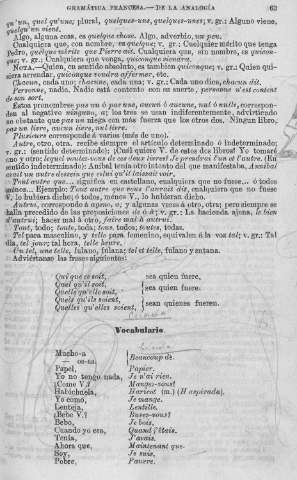 GRAMÁTICA FRANCESA.—DE LA ANALOGÍA 63
qu'un, quel qu'une; plural, quelques-uns, quelques-unes; v. gr.: Alguno viene,
quelqu'un vient.
Algo, alguna cosa, es quelque chose. Algo, adverbio, un peu.
Cualquiera que, con nombre, es quelque; v. gr.: Cualquier mérito que tenga
Pedro, quelque mérite que Pierre ait. Cualquiera que, sin nombre, es quicon-
que; v. gr.: Cualquiera que venga, quiconque viendra.
NOTA.—Quien, en sentido absoluto, es también quiconque; v. gr.: Quien qui-
siera arrendar, quiconque voudra affermer, etc.
Chacun, cada uno; chacune, cada una; v. gr.: Cada uno dice, chacun dit.
Personne, nadie. Nadie está contento con su suerte, personne n'est content
de son sort.
Estos pronombres pas un ó pas une, aucun ó aucune, nul ó nulle, correspon-
den al negativo ninguno, a; los tres se usan indiferentemente, advirtiendo
no obstante que por sí niega con más fuerza que los otros dos. Ningun libro,
pas un livre, aucun livre, nul livre.
Plusieurs corresponde á varios (más de uno).
Autre, otro, otra, recibe siempre el artículo determinado ó indeterminado;
v. gr.: (sentido determinado): ¿Cuál quiere V. de estos dos libros? Yo tomaré
uno y otro; lequel voulez-vous de ces deux livres? Je prendrai l'un et l'autre. (En
sentido indeterminado): Anibal tenía otro intento del que manifestaba, Annibal
avait un autre dessein que celui qu'il laissait voir.
Tout autre que ... significa en castellano, cualquiera que no fuese... ó todos
menos... Ejemplo: Tout autre que vous l'aurait dit, cualquiera que no fuese
V. lo hubiera dicho; ó todos, ménos V., lo hubieran dicho.
Autrui, corresponde á ajeno, a; y algunas veces á otro, otra; pero siempre se
halla precedido de las preposiciones de ó à; v. gr.: La hacienda ajena, le bien
d'autrui; hacer mal á otro, faire mal à autrui.
Tout, todo; toute, toda; tous, todos; toutes, todas.
Tel para masculino, y telle para femenino, equivalen á la voz tal; v. gr.: Tal
dia, tel jour; tal hora, telle heure.
Un tel, une telle, fulano, fulana; tel et telle, fulano y zutana.
Adviértanse las frases siguientes:
Qui que ce soit,
Quel qu'il soit,
Quelle qu'elle soit,
sea quien fuere.
sea quien fuere.
Quels qu'ils soient,
Quelles qu'elles soient,
sean quienes fueren.
Vocabulario.
Mucho-a
— os-as
Beaucoup de.
Papel, Papier.
Yo no tengo nada, Je n'ai rien.
¿Come V.? Mangez-vous?
Habichuela, Haricot (m.) (H aspirada).
Yo como, Je mange.
Lenteja, Lentille.
¿Bebe V.? Buvez-vous?
Bebo, Je bois.
Cuando yo era, Quand j'étais.
Tenía, J'avais.
Ahora que, Maintenant que.
Soy, Je suis.
Pobre, Pauvre.